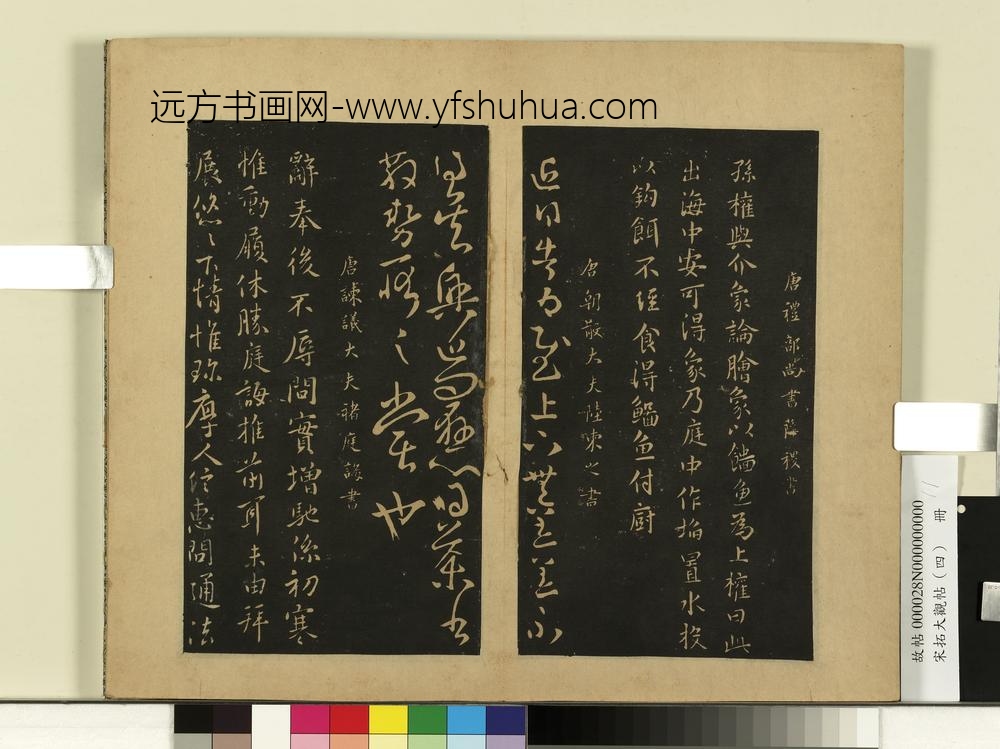 远方书画网-www.yfshuhua.com
唐禮部尚書薛稷書
孫權與介象論膾象以鯔魚為上權曰此
出海中安可得象乃庭中作埳置水投
以鈎餌不經食得鯔魚付廚
唐朝散大夫陸柬之書
近得告為慰上下無恙不
散勢耶之常也
唐諫議大夫褚庭誨書
辭奉後不辱問實增馳係初寒
惟動履休勝庭誨推前耳未由拜
展悠〻下情惟珍厚人住惠問通法
故帖 000028N000000000
宋拓大觀帖（四） 冊
11